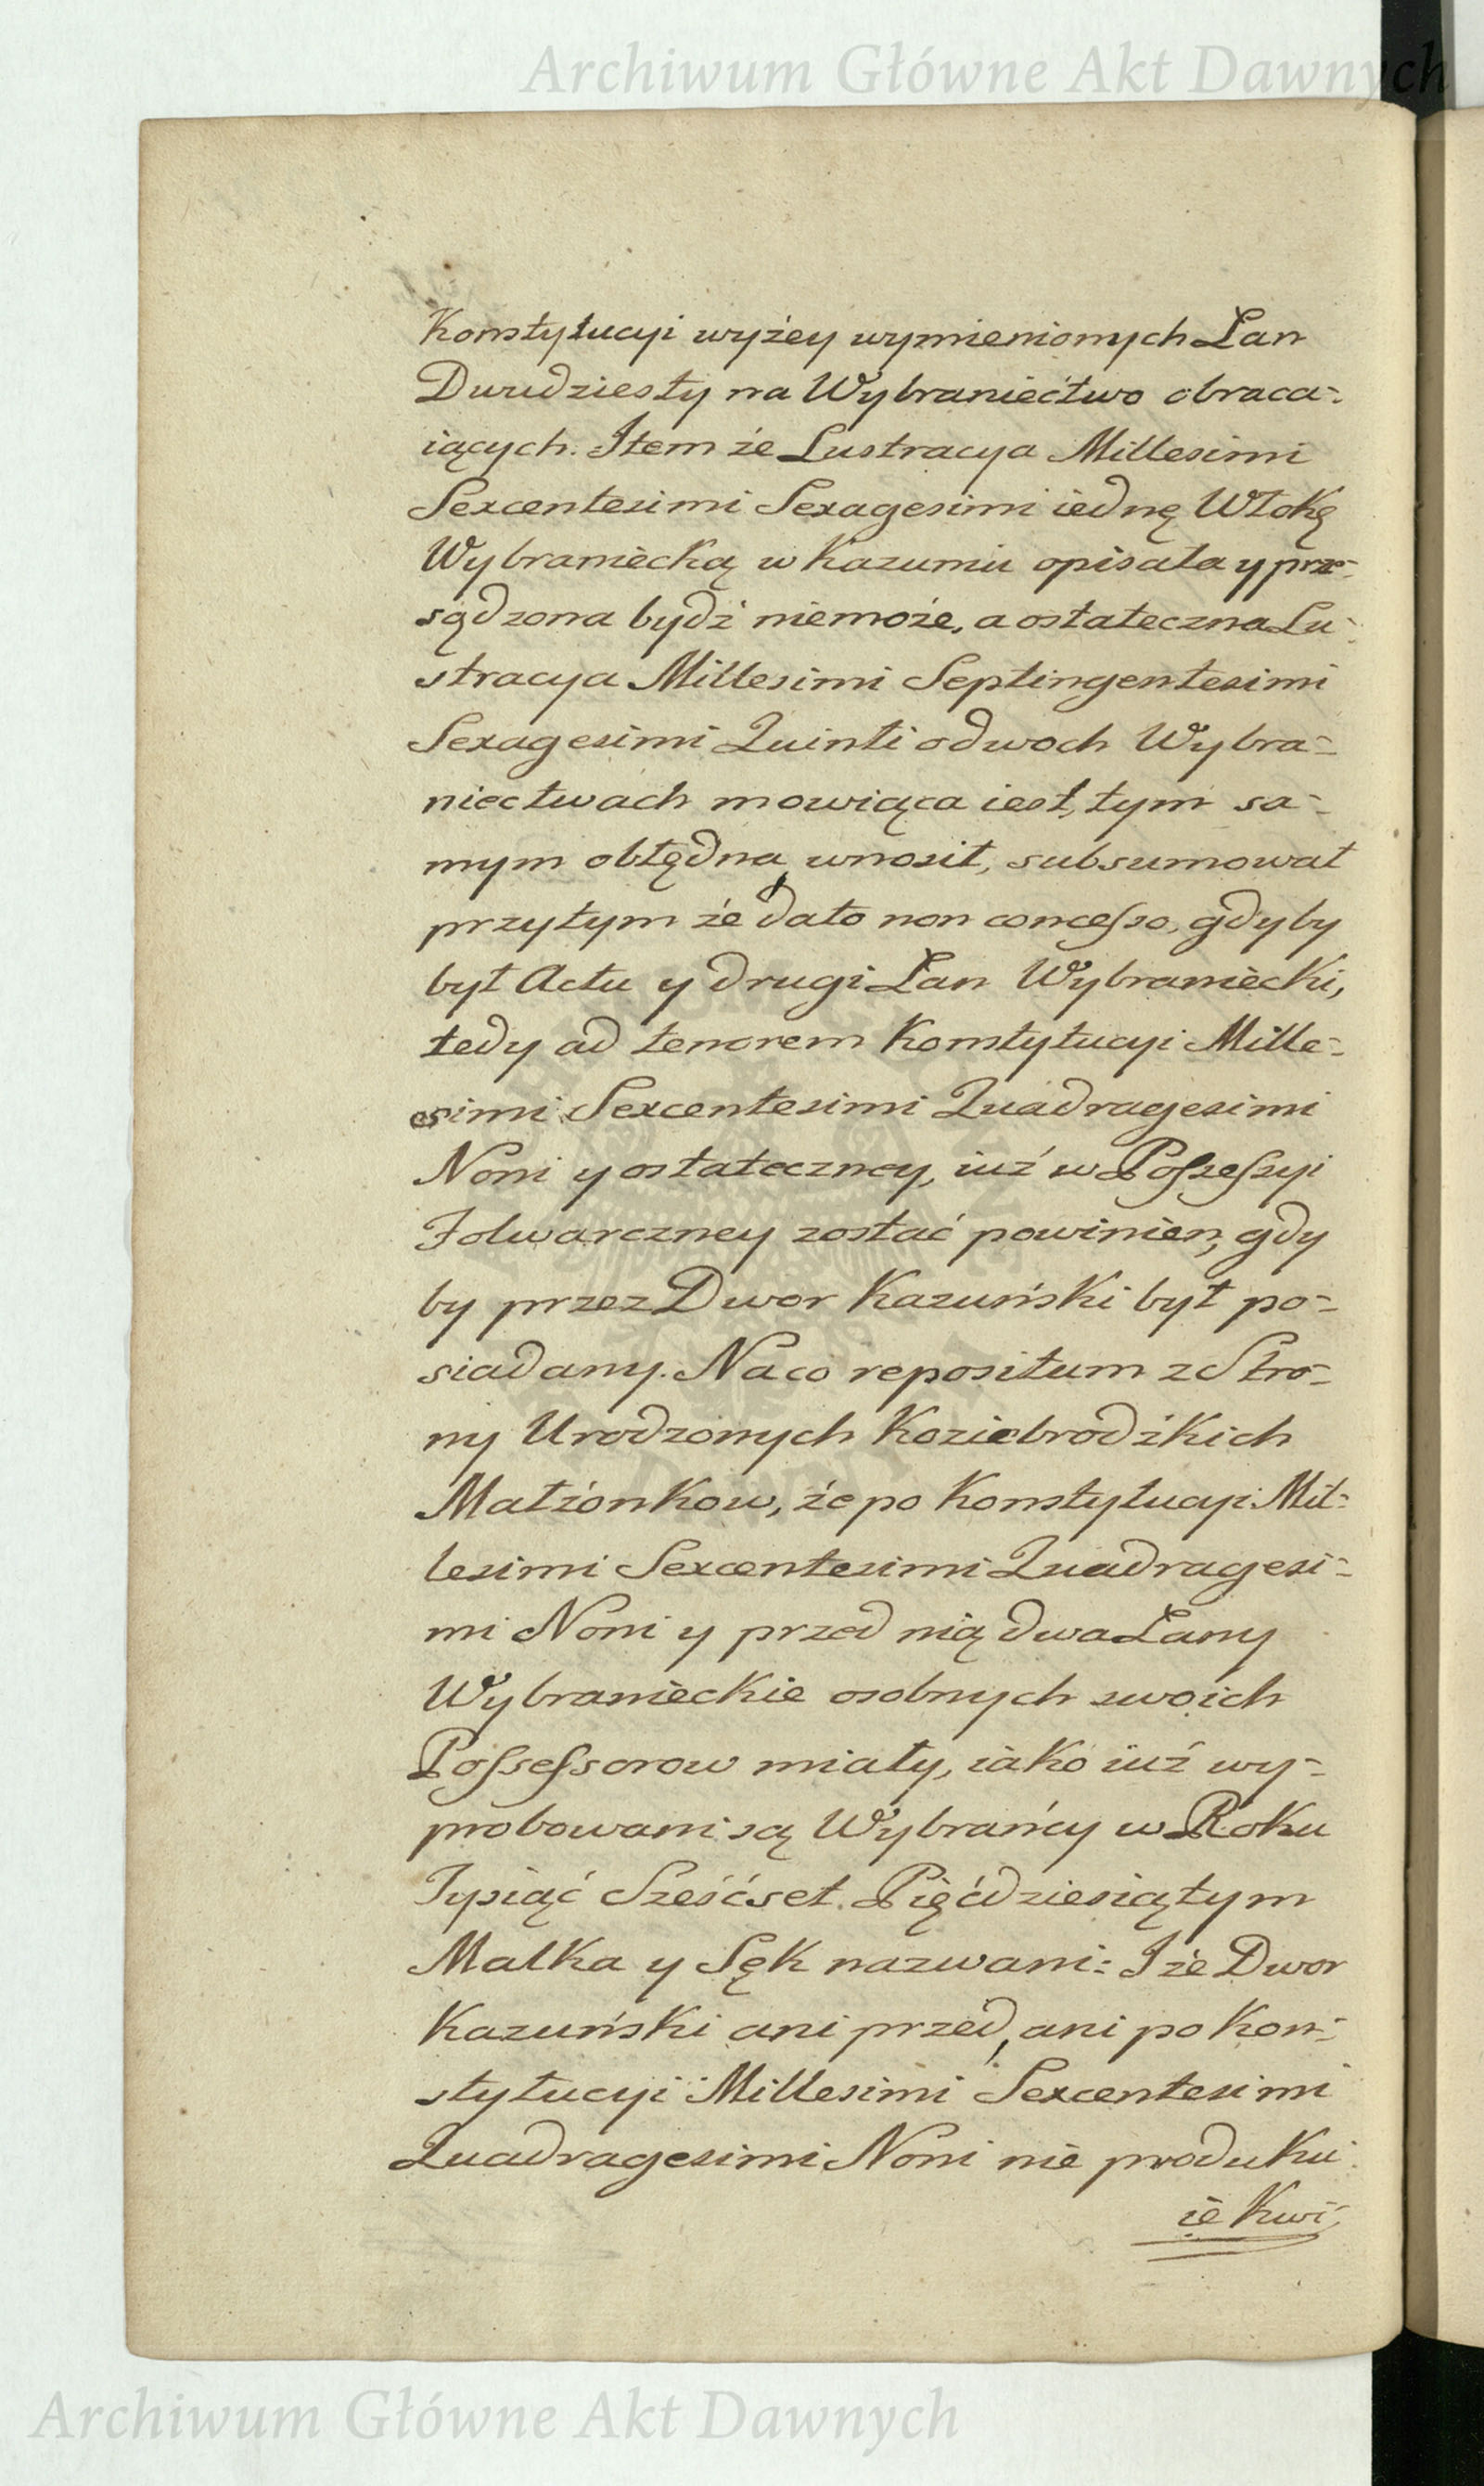 Archiwum Główne Akt Dawnych
Konstytucyi wyżey wymienionych Łan
Dwudziesty na Wybraniećtwo obraca-
iących. Item że Lustracya Millesimi
Sexcentesimi Sexagesimi iednę Włokę
Wybraniecką w Kazuniu opisała y prze-
sądzona bydź niemoże, a ostateczna Lu-
stracya Millesimi Septingentesimi
Sexagesimi Quinti o dwoch Wybra-
niectwach mowiąca iest, tym sa-
mym obłędna, wnosił, subsumował
przytym że dato non concesso, gdyby
był Actu y drugi Łan Wybraniecki,
tedy ad tenorem Konstytucyi Mille-
esimi Sexcentesimi Quadragesimi
Noni y ostateczney, iuż w Possessyi
Folwarczney zostać powinien, gdy
by przez Dwor Kazuński był po-
siadany. Na co repositum z Stro-
ny Urodzonych Koziebrodzkich
Małżonkow, że po Konstytucyi Mil-
lesimi Sexcentesimi Quadragesi-
mi Noni y przed nią dwa Łany
Wybranieckie osobnych swoich
Possessorow miały, iako iuż wy-
probowani są Wybrańcy w Roku
Tysiąć Sześćset Pięćdziesiątym
Malka y Sęk nazwani: I że Dwor
Kazuński ani przed, ani po Kon-
stytucyi Millesimi Sexcentesimi
Quadragesimi Noni nie produku-
ie Kwi-
Archiwum Główne Akt Dawnych